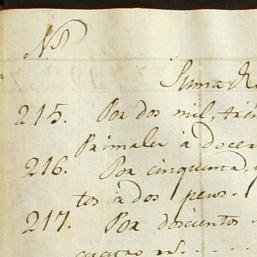 Nº
Suma
215. Por dos mil, tre
Primales à doce
216. Por cinquenta,
tos à dos pesos.
217. Por doscientos
cuatro rs.